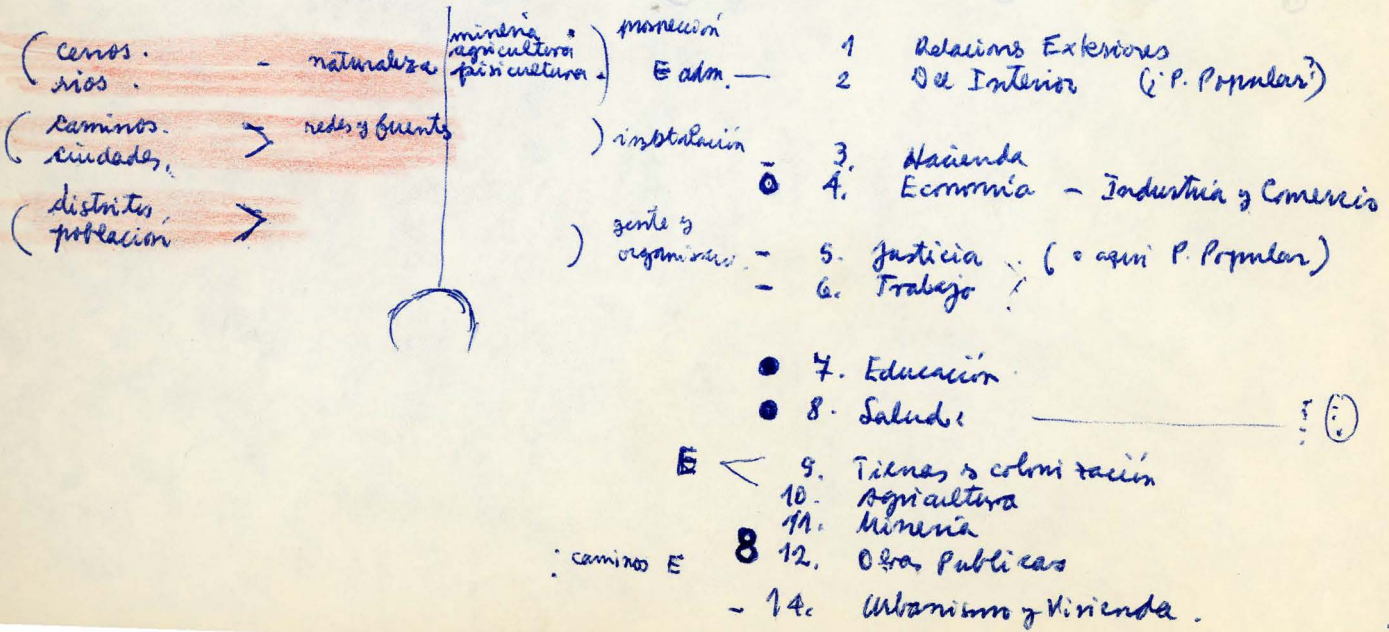 ( cerros.
rios.
- naturaleza
( caminos.
ciudades.
> redes y fuentes
( distritos,
población
>
mineria
agricultura
pisicultura
) prospección
E adm. —
) instalación
) gente y
organismo
1 Relaciones Exteriores
2 Del Interior (¿ P. Popular?)
- 3. Hacienda
4. Economía - Industria y Comercio
- 5. Justicia (o aqui P. Popular)
- 6. Trabajo
7. Educación
8. Salud
E < 9. Tierras y colonización
10. Agricultura
11. Mineria
: caminos E 8 12. Obras Publicas
- 14. Urbanismo y Vivienda.